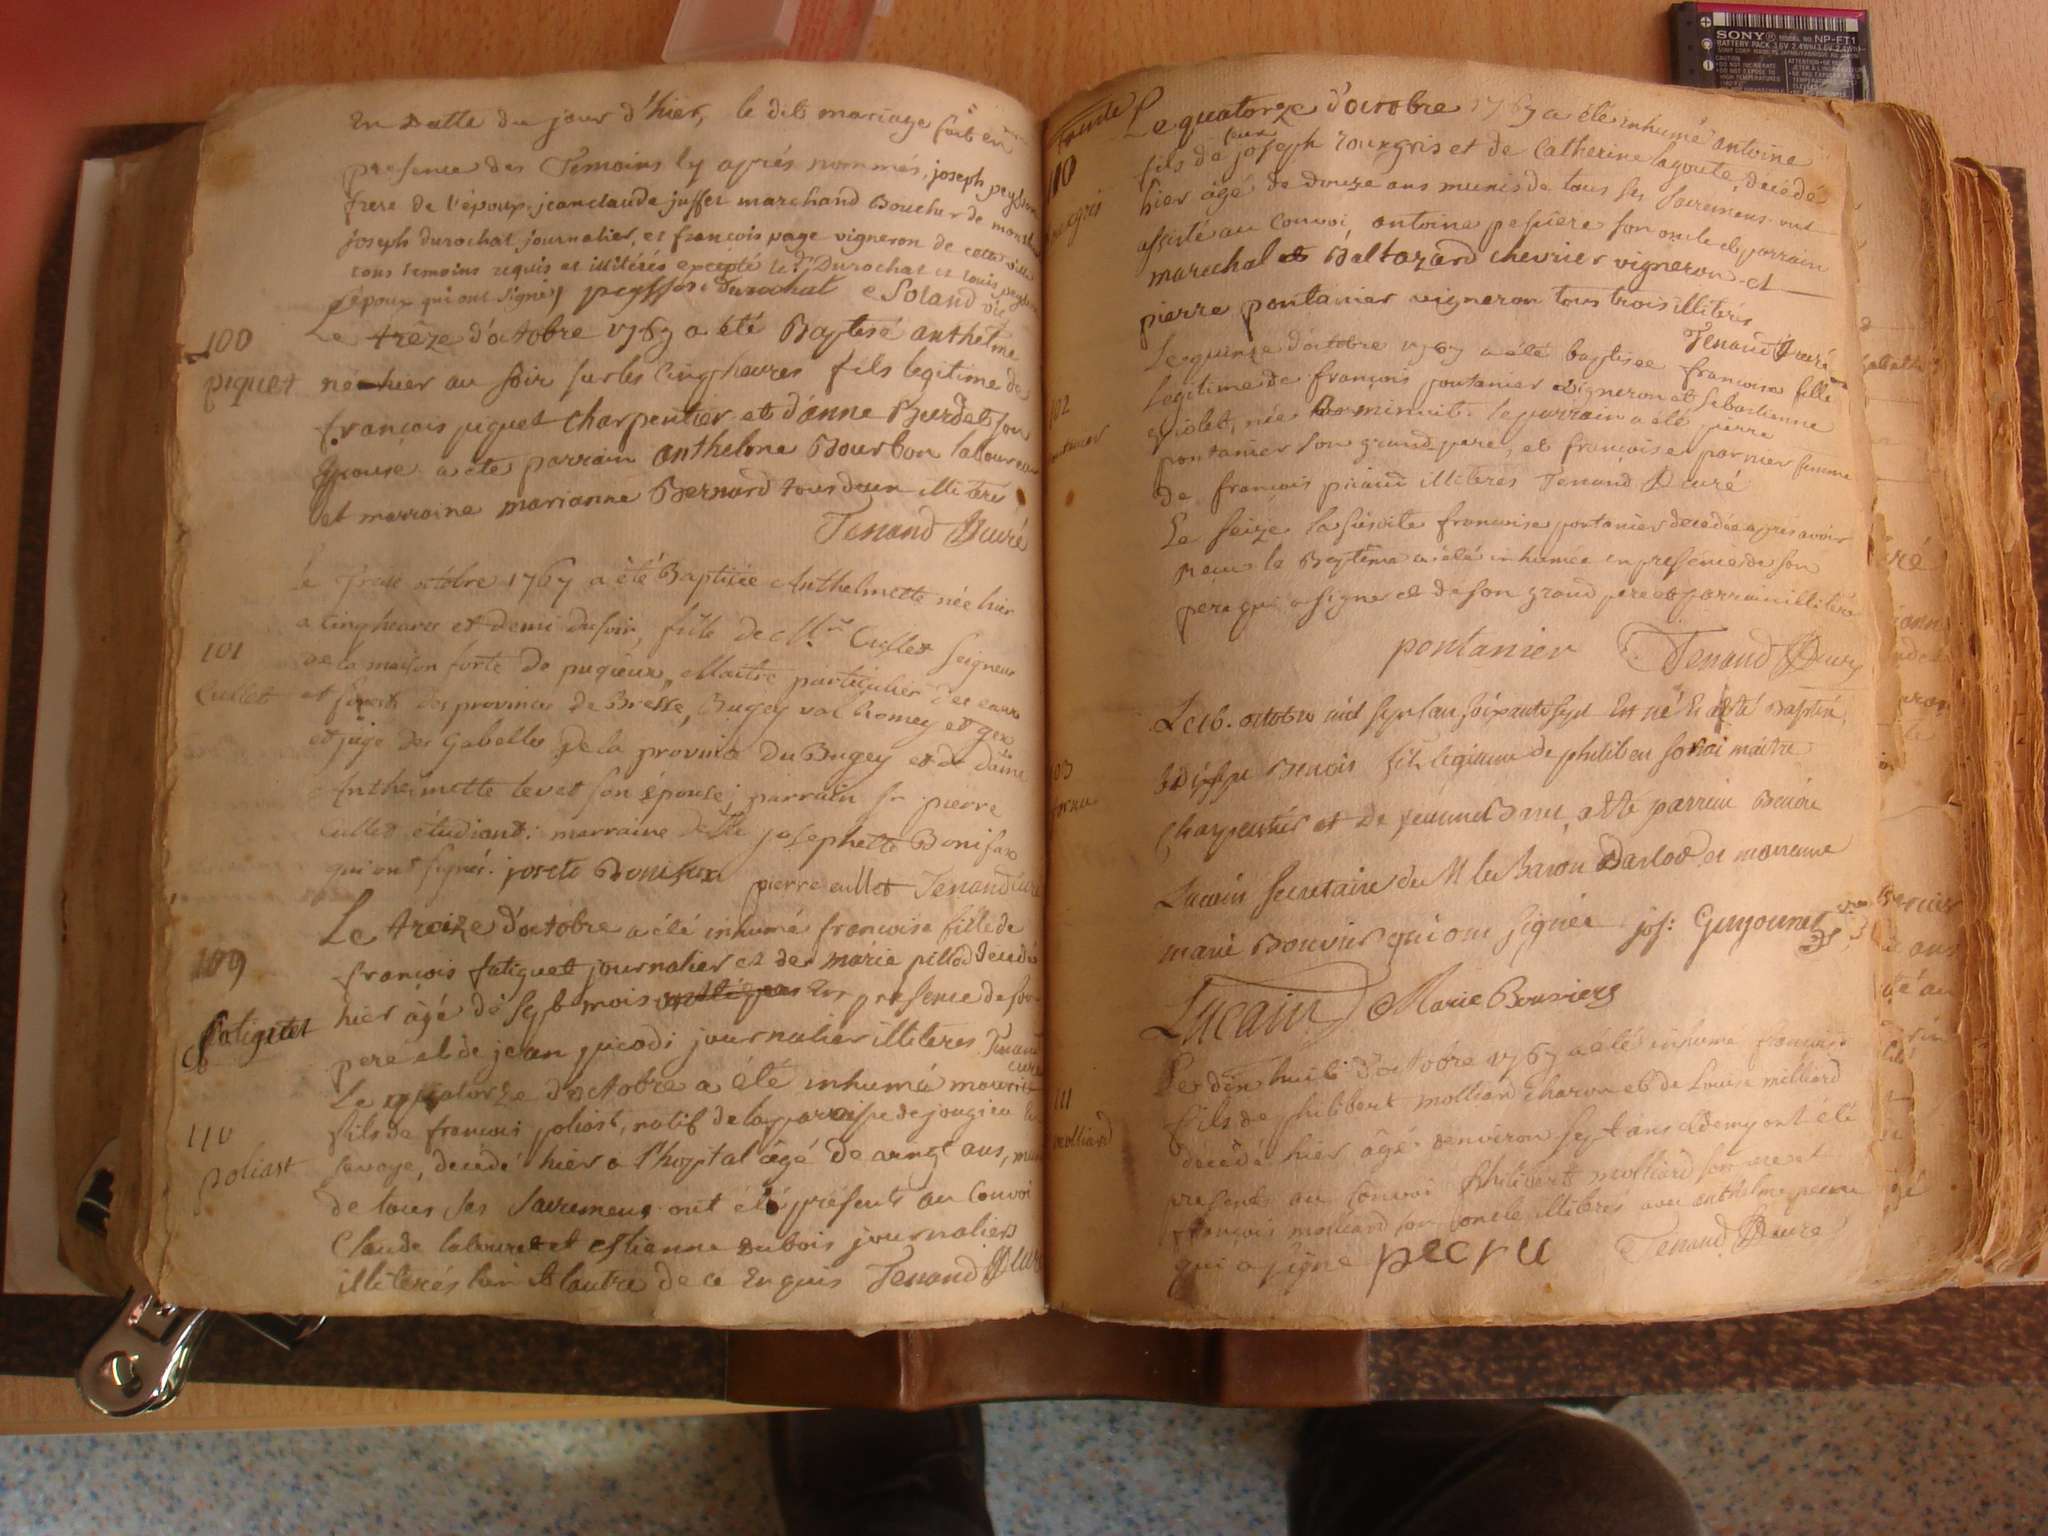 En Datte du jour d'hier, le dit mariage fait en
presence des Temoins cy aprés nommés, joseph
frere de l'époux jeanclaude juffet marchand Boucher de
joseph durochat journalier, et françois page vigneron de cette ville
tous temoins requis et illitérés excepté le dt Durochat et louis
L'époux qui ont signés Durochat
100
piquet
Le trêze d'octobre 1767 a été Baptisé anthelme
né hier au soir sur les cinq heures fils legitime de
françois piquet charpentier et d'anne Burdet son
Epouse a été parrain anthelme Bourbon laboureur
et marraine marianne Bernard tous deux illiteres
Tenand Curé
101
Cullet
le Treze octobre 1767 a été Baptisée Anthelmette née hier
a cinq heures et demi du soir, fille de Mr. Cullet Seigneur
de la maison forte de pugieux, Maitre particulier des eaux
et forets des provinces de Bresse, Bugey valromey et gex
et juge des Gabelles de la province du Bugey et de dame
Anthelmette levet son épouse; parrain sr pierre
Cullet étudiant: marraine dlle josephette Bonifax
qui ont signés. josete Bonifax pierre cullet Tenand curé
109
fatiguet
Le treize d'octobre a été inhumé francoise fille de
françois fatiguet journalier et de marie pillod decedée
hier âgé de sept mois en presence de son
pere et de jean picodi journalier illiteres Tenand
curé
110
poliast
Le quatorze d'octobre a été inhumé maurice
fils de françois poliast, natif de la paroisse de jongieu en
savoye, decedé hier a l'hopital âgé de vingt ans, muni
de tous ses sacremens ont été présents au Convoi
Claude labouret et estienne dubois journaliers
illiterés l'un et l'autre de ce Enquis Tenand Curé
110
Le quatorze d'octobre 1767 a été inhumé antoine
fils de feu joseph rougris et de Catherine lagoute, décédé
hier âgé de douze ans munis de tous ses sacremens ont
assisté au convoi, antoine pesiere son oncle et parrain
marechal et Baltazard chevrier vigneron et
pierre pontanier vigneron tous trois illiteres
Tenand Curé
102
pontanier
Le quinze d'octobre 1767 a été baptisée francoise fille
legitime de françois pontanier vigneron et sebastienne
violet, née a minuit. le parrain a été pierre
pontanier son grand pere, et françoise parnier femme
de françois piraud illiteres Tenand Curé
Le seize la susdite francoise pontanier decedée apres avoir
reçu le Baptême a été inhumée en presence de son
pere qui a signe et de son grand pere et parrain illitere
pontanier Tenand Curé
103
Le 16. octobre mil sept cent soixante sept Est né Et a été Baptisé
Benois fils legitime de philibert sornai maitre
charpentier et de a été parrain Benois
Lucain secretaire de M le Baron Darlod et marenne
marie Bouvier qui ont signée jos: Guyonnet vic
Lucain Marie Bouvier
111
molliard
Le dix huit d'octobre 1767 a été inhumé francois
fils de philibert molliard charon et de Louise milliard
decedé hier âgé denviron sept ans et demy ont été
presents au convoi philibert molliard son pere et
françois molliard son oncle illiteres avec anthelme pecru
qui a signe pecru Tenand Curé
SONY MODEL NO. NP-FT1
BATTERY PACK 3.6V 2.4Wh
CAUTION
ATTENTION